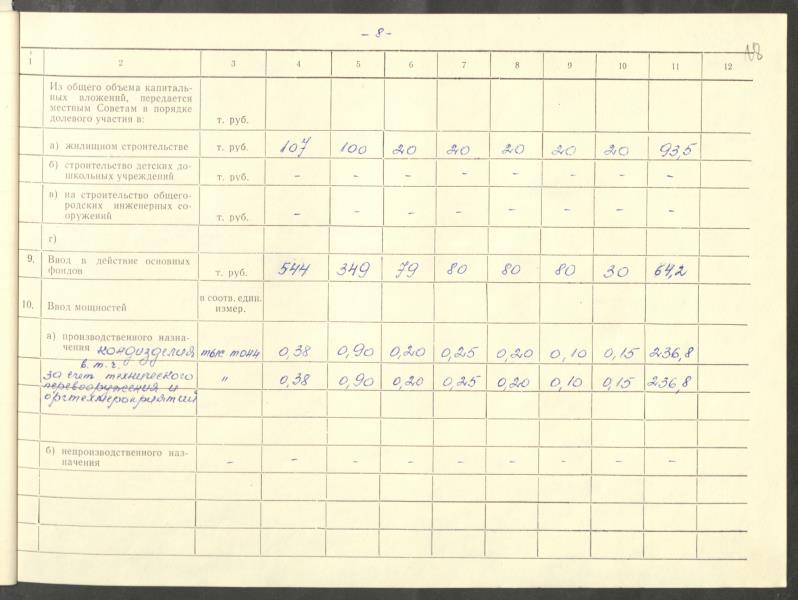 - 8 -
1 2 3 4 5 6 7 8 9 10 11 12
Из общего объема капиталь-
ных вложений, передается
местным Советам в порядке
долевого участия в: т. руб.
а) жилищном строительстве т. руб. 107 100 20 20 20 20 20 93,5
б) строительство детских до-
школьных учреждений т. руб. - - - - - - - -
в) на строительство общего-
родских инженерных со-
оружений т. руб. - - - - - - - -
г)
9. Ввод в действие основных
фондов т. руб. 544 349 79 80 80 80 30 64,2
10. Ввод мощностей в соотв. един.
измер.
а) производственного назна-
чения кондизделия тыс тонн 0,38 0,90 0,20 0,25 0,20 0,10 0,15 236,8
в. т. ч.
за счет технического " 0,38 0,90 0,20 0,25 0,20 0,10 0,15 236,8
перевооружения и
оргтехмероприятий
б) непроизводственного наз-
начения - - - - - - - - -